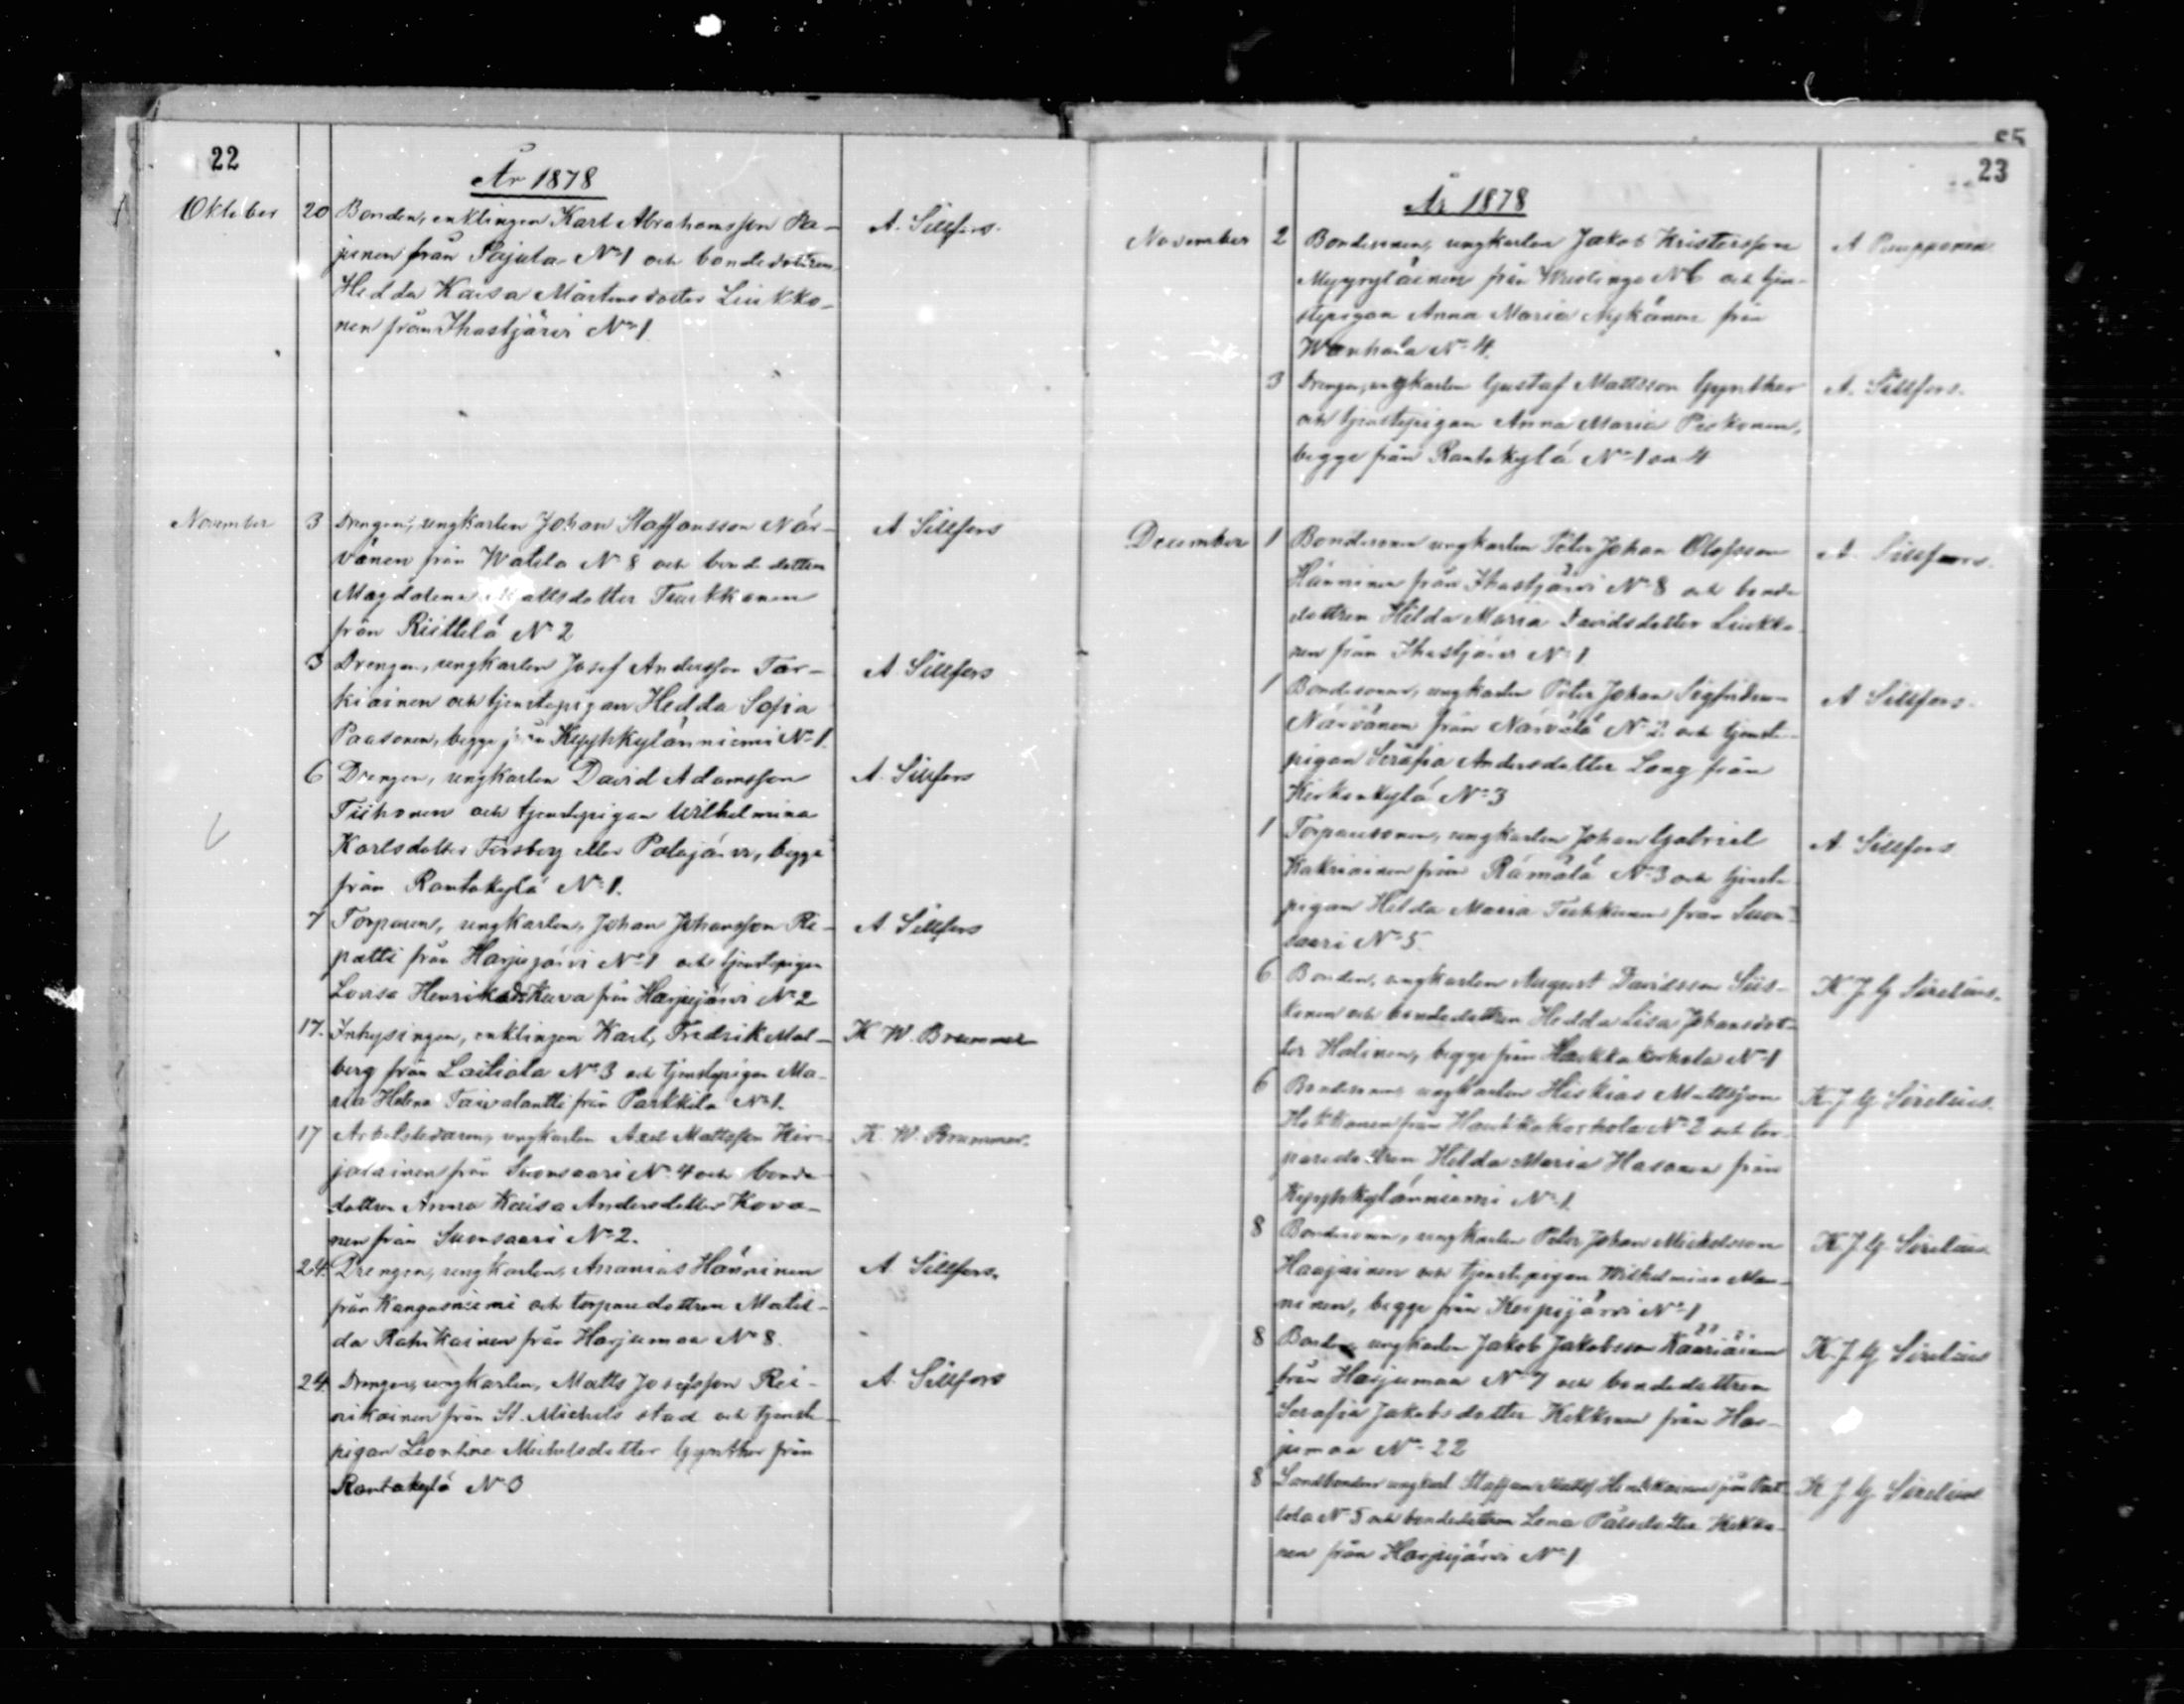 22
År 1878
Oktober 20 Bonden, enklingen Karl Abrahamsson Pa-
A. Sillfors.
junen från Pajula No 1 och bondedottren
Hedda Kaisa Mårtensdotter Liukko-
nen från Ihastjärvi No 1.
November 3 Drengen, ungkarlen Johan Staffansson När-
A Sillfors
vänen från Watila No 8 och bondedottren
Magdalena Mattsdotter Turkkanen
från Riittilä No 2
3 Drengen, ungkarlen Josef Andersson Tar-
A. Sillfors
kiainen och tjenstepigan Hedda Sofia
Paasonen, begge från Kyyhkylänniemi No 1.
6 Drengen, ungkarlen David Adamsson
A. Sillfors
Tiihonen och tjenstepigan Wilhelmina
Karlsdotter Forsberg eller Polajärvi, begge
från Rantakylä No 1.
7 Torparen, ungkarlen, Johan Johansson Re-
A. Sillfors
patti från Harjujärvi No 1 och tjenstepigan
Lovisa Henriksdr Kurva från Harjujärvi No 2
17. Inhysingen, enklingen Karl Fredrik Mal-
K W. Brummer
berg från Lailiala No 3 och tjenstepigan Ma-
ria Helena Taivalantti från Parkkila No 1.
17 Arbetskarlen, ungkarlen Axel Mattsson Hir-
K. W. Brummer.
jalainen från Suonsaari No 4 och bonde
dottren Anna Kaisa Andersdotter Kova-
nen från Suonsaari No 2.
24. Drengen, ungkarlen, Ananias Hänninen
A Sillfors.
från Kangasniemi och torparedottren Matil-
da Rahikainen från Harjumaa No 8.
24 Drengen, ungkarlen, Matts Josefsson Rei-
A. Sillfors
nikainen från St. Michels stad och tjenste-
pigan Leontine Michelsdotter Gynther från
Rantakylä No 3
23
År 1878
November 2 Bondesonen, ungkarlen Jakob Kristersson
A Pumppanen
Myyryläinen från No 6 och tjen-
stepigan Anna Maria Nykänen från
Wanhala No 4.
3 Drengen, ungkarlen Gustaf Mattsson Gynther
A. Sillfors.
och tjenstepigan Anna Maria Piskonen,
begge från Rantakylä No 1 och 4
December 1 Bondesonen ungkarlen Peter Johan Olofsson
A. Sillfors.
Hänninen från Ihastjärvi No 8 och bonde
dottren Hilda Maria Davidsdotter Liukko-
nen från Ihastjärvi No 1.
1 Bondesonen, ungkarlen Peter Johan Sigfridsson
A Sillfors.
Närvänen från Närvälä No 2 och tjenste-
pigan Serafia Andersdotter Lang från
Kirkonkylä No 3
1 Torparesonen, ungkarlen Johan Gabriel
A Sillfors
Kakriainen från Rämälä No 3 och tjenste-
pigan Hilda Maria Tuhkunen från Suon-
saari No 5.
6 Bonden, ungkarlen August Davidsson Siis-
K. J. G. Sirelius.
konen och bondedottren Hedda Lisa Johansdot-
ter Halinen, begge från Haukkakorhola No 1
6 Bondesonen, ungkarlen Hiskias Mattsson
K. J. G. Sirelius.
Hokkanen från Haukkakorhola No 2 och tor-
paredottren Hilda Maria Hasanen från
Kyyhkylänniemi No 1.
8 Bondesonen, ungkarlen Peter Johan Mickelsson
K. J. G. Sirelius
Haajainen och tjenstepigan Wilhelmina Man-
ninen, begge från Korpijärvi No 1
8 Bonden, ungkarlen Jakob Jakobsson Kääriäinen
K. J. G. Sirelius
från Harjumaa No 7 och bondedottren
Serafia Jakobsdotter Kekkonen från Har-
jumaa No 22
8 Landbonden ungkarl Staffan Mattss Heikkainen från
K J G Sirelius
No 5 och bondedottren Lena Pålsdotter Kekko-
nen från Harjujärvi No 1